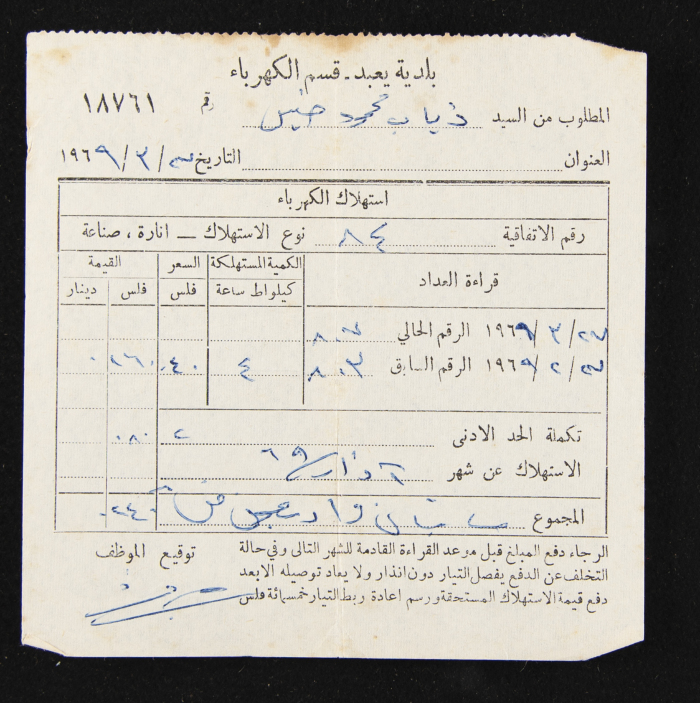 بلدية يعبد - قسم الكهرباء
المطلوب من السيد ذياب محمود رقم ١٨٧٦١
العنوان التاريخ /٣/١٩٦٩
استهلاك الكهرباء
رقم الاتفاقية ٨٤ نوع الاستهلاك — انارة ، صناعة
قراءة العداد الكمية المستهلكة السعر القيمة
كيلواط ساعة فلس فلس دينار
٢٧/٣/١٩٦٩ الرقم الحالي ٨٠٧
٢٧/٢/١٩٦٩ الرقم السابق ٨٠٣ ٤ ٤٠ ١٦٠
تكملة الحد الادنى ٢ ٠٨٠
الاستهلاك عن شهر آذار/٦٩
المجموع مائتان واربعون فلس ٢٤٠
الرجاء دفع المبلغ قبل موعد القراءة القادمة للشهر التالى وفي حالة
التخلف عن الدفع يفصل التيار دون انذار ولا يعاد توصيله الا بعد
دفع قيمة الاستهلاك المستحقة ورسم اعادة ربط التيار خمسمائة فلس
توقيع الموظف